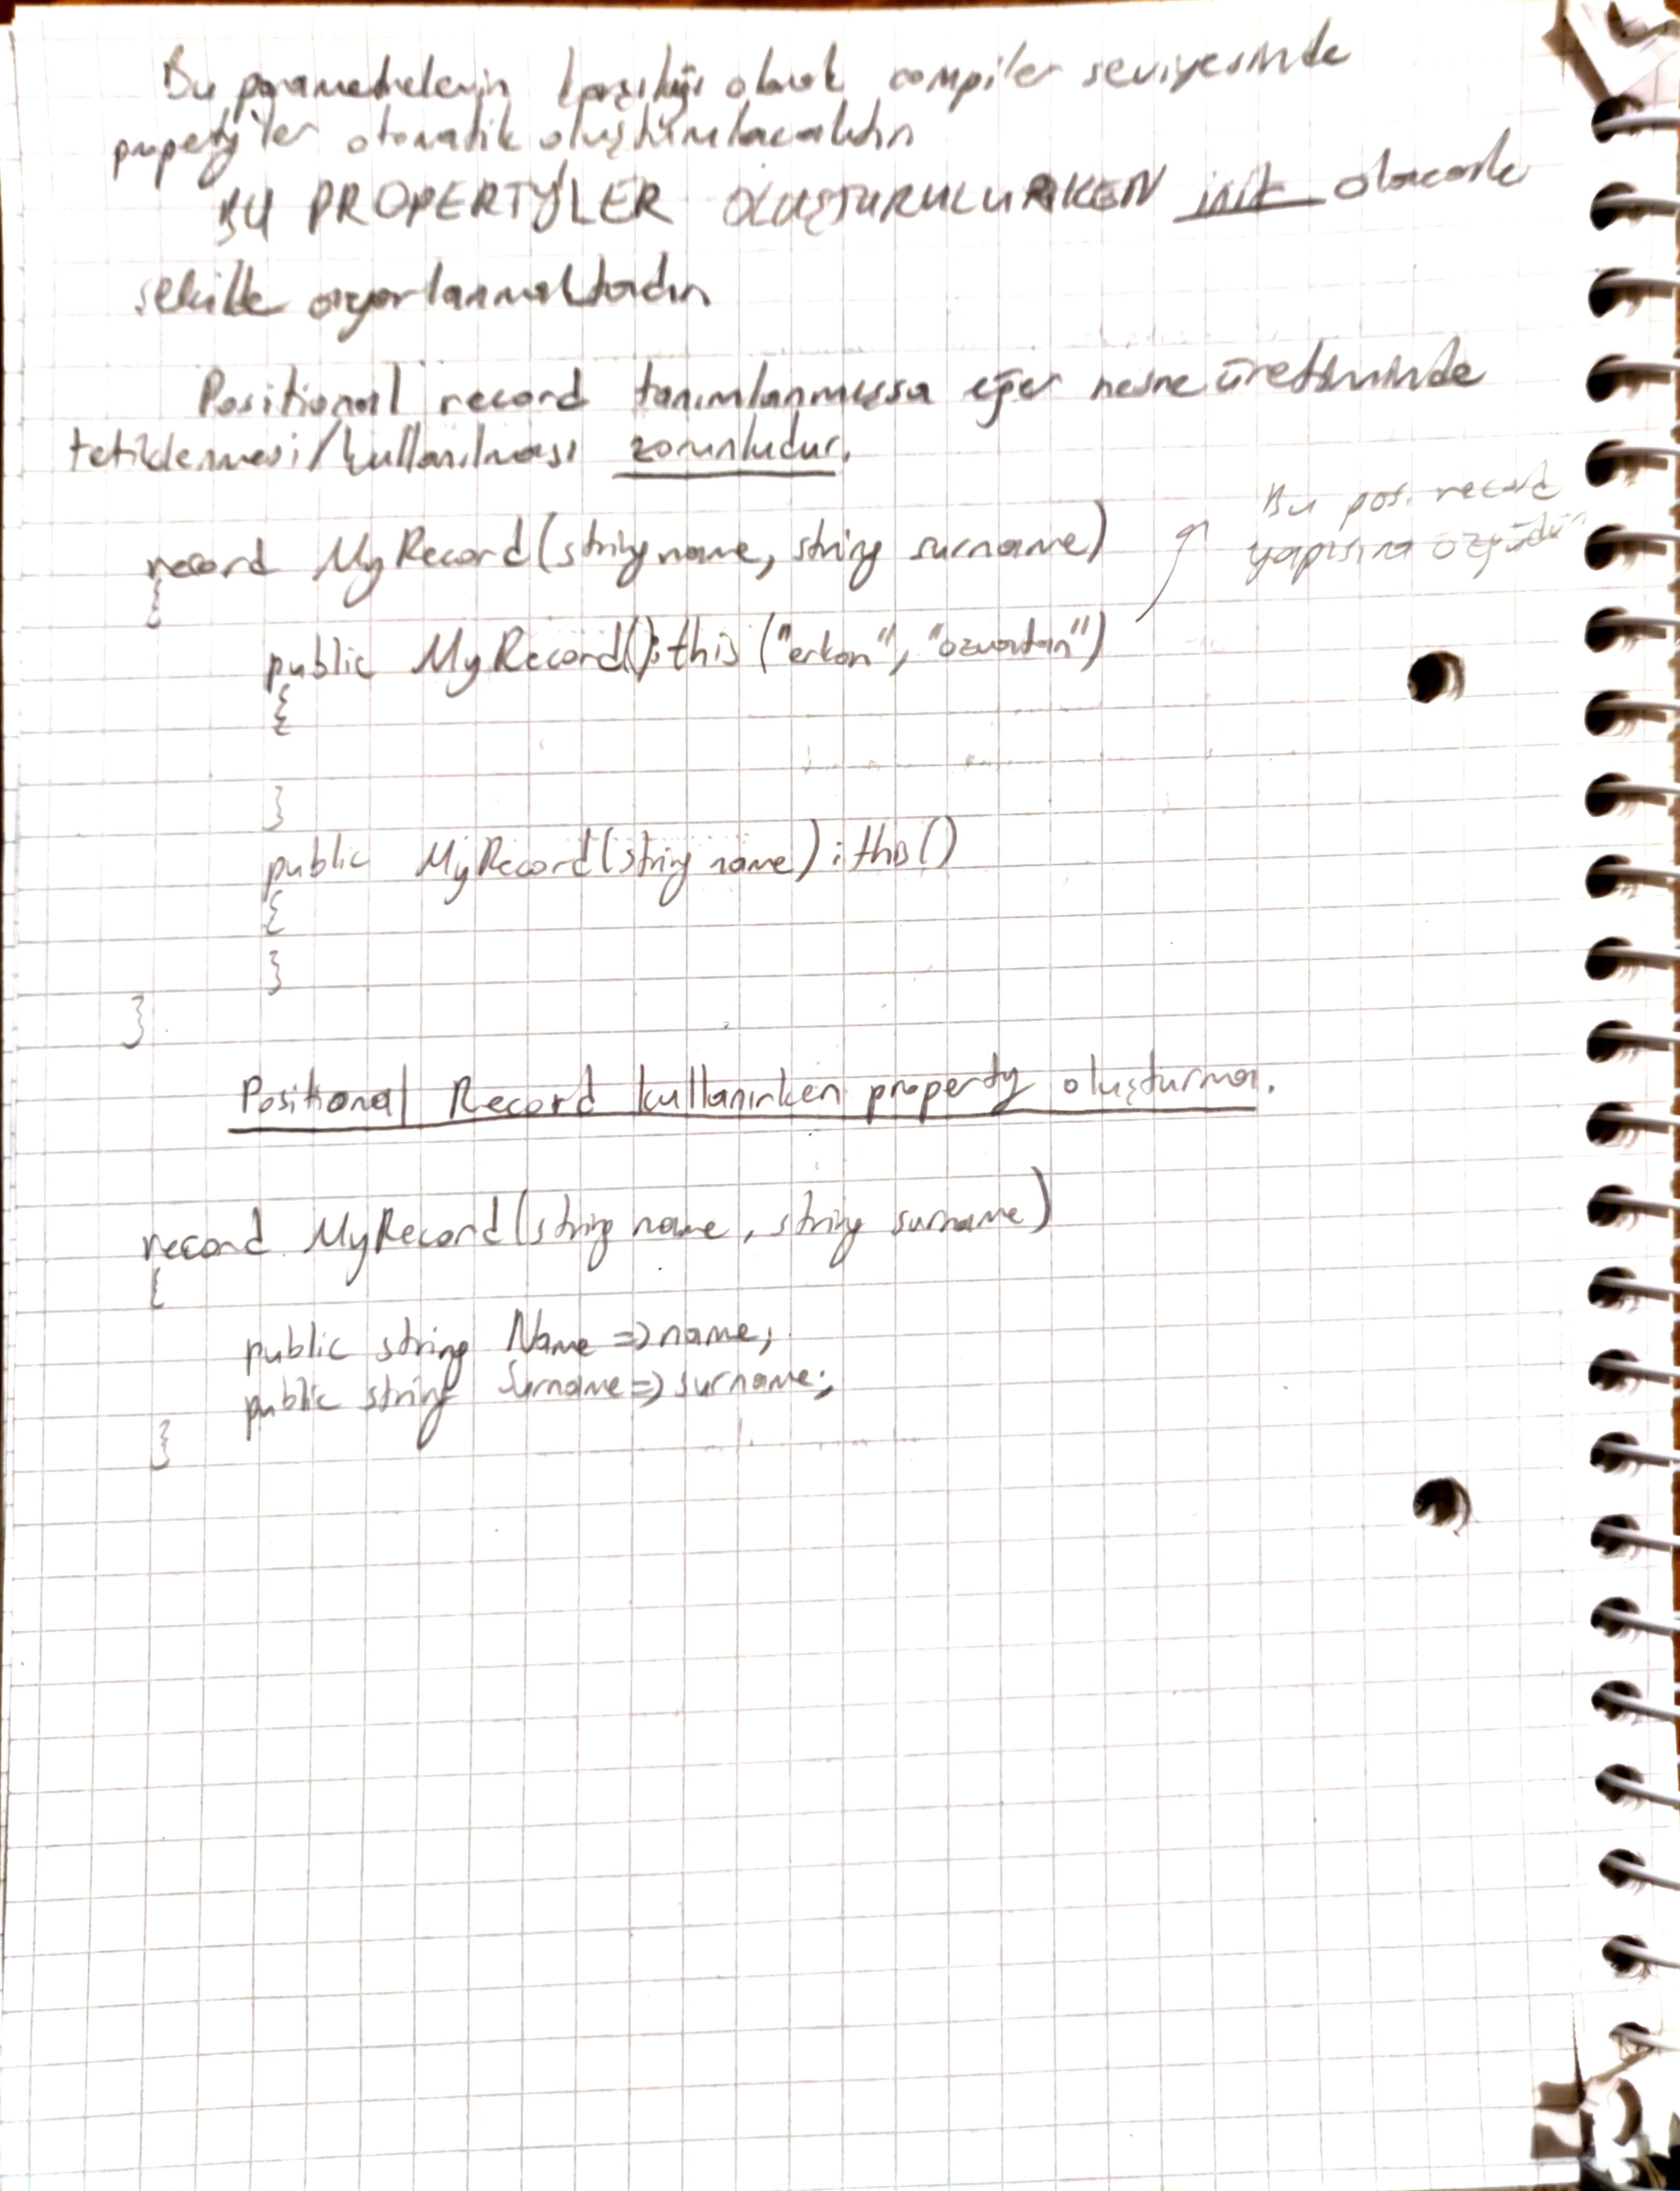 Bu parametrelerin karşılığı olarak compiler seviyesinde
property'ler otomatik oluşturulacaktır
BU PROPERTY'LER OLUŞTURULURKEN init olacak
şekilde ayarlanmaktadır
Positional record tanımlanmışsa eğer nesne üretiminde
tetiklenmesi/kullanılması zorunludur.
Bu pos. record
yapısına özgüdür
record MyRecord(string name, string surname)
{
public MyRecord():this ("erkan", "özvatan")
{
}
public MyRecord(string name):this()
{
}
}
Positional Record kullanırken property oluşturma.
record MyRecord(string name, string surname)
{
public string Name => name;
public string Surname => surname;
}